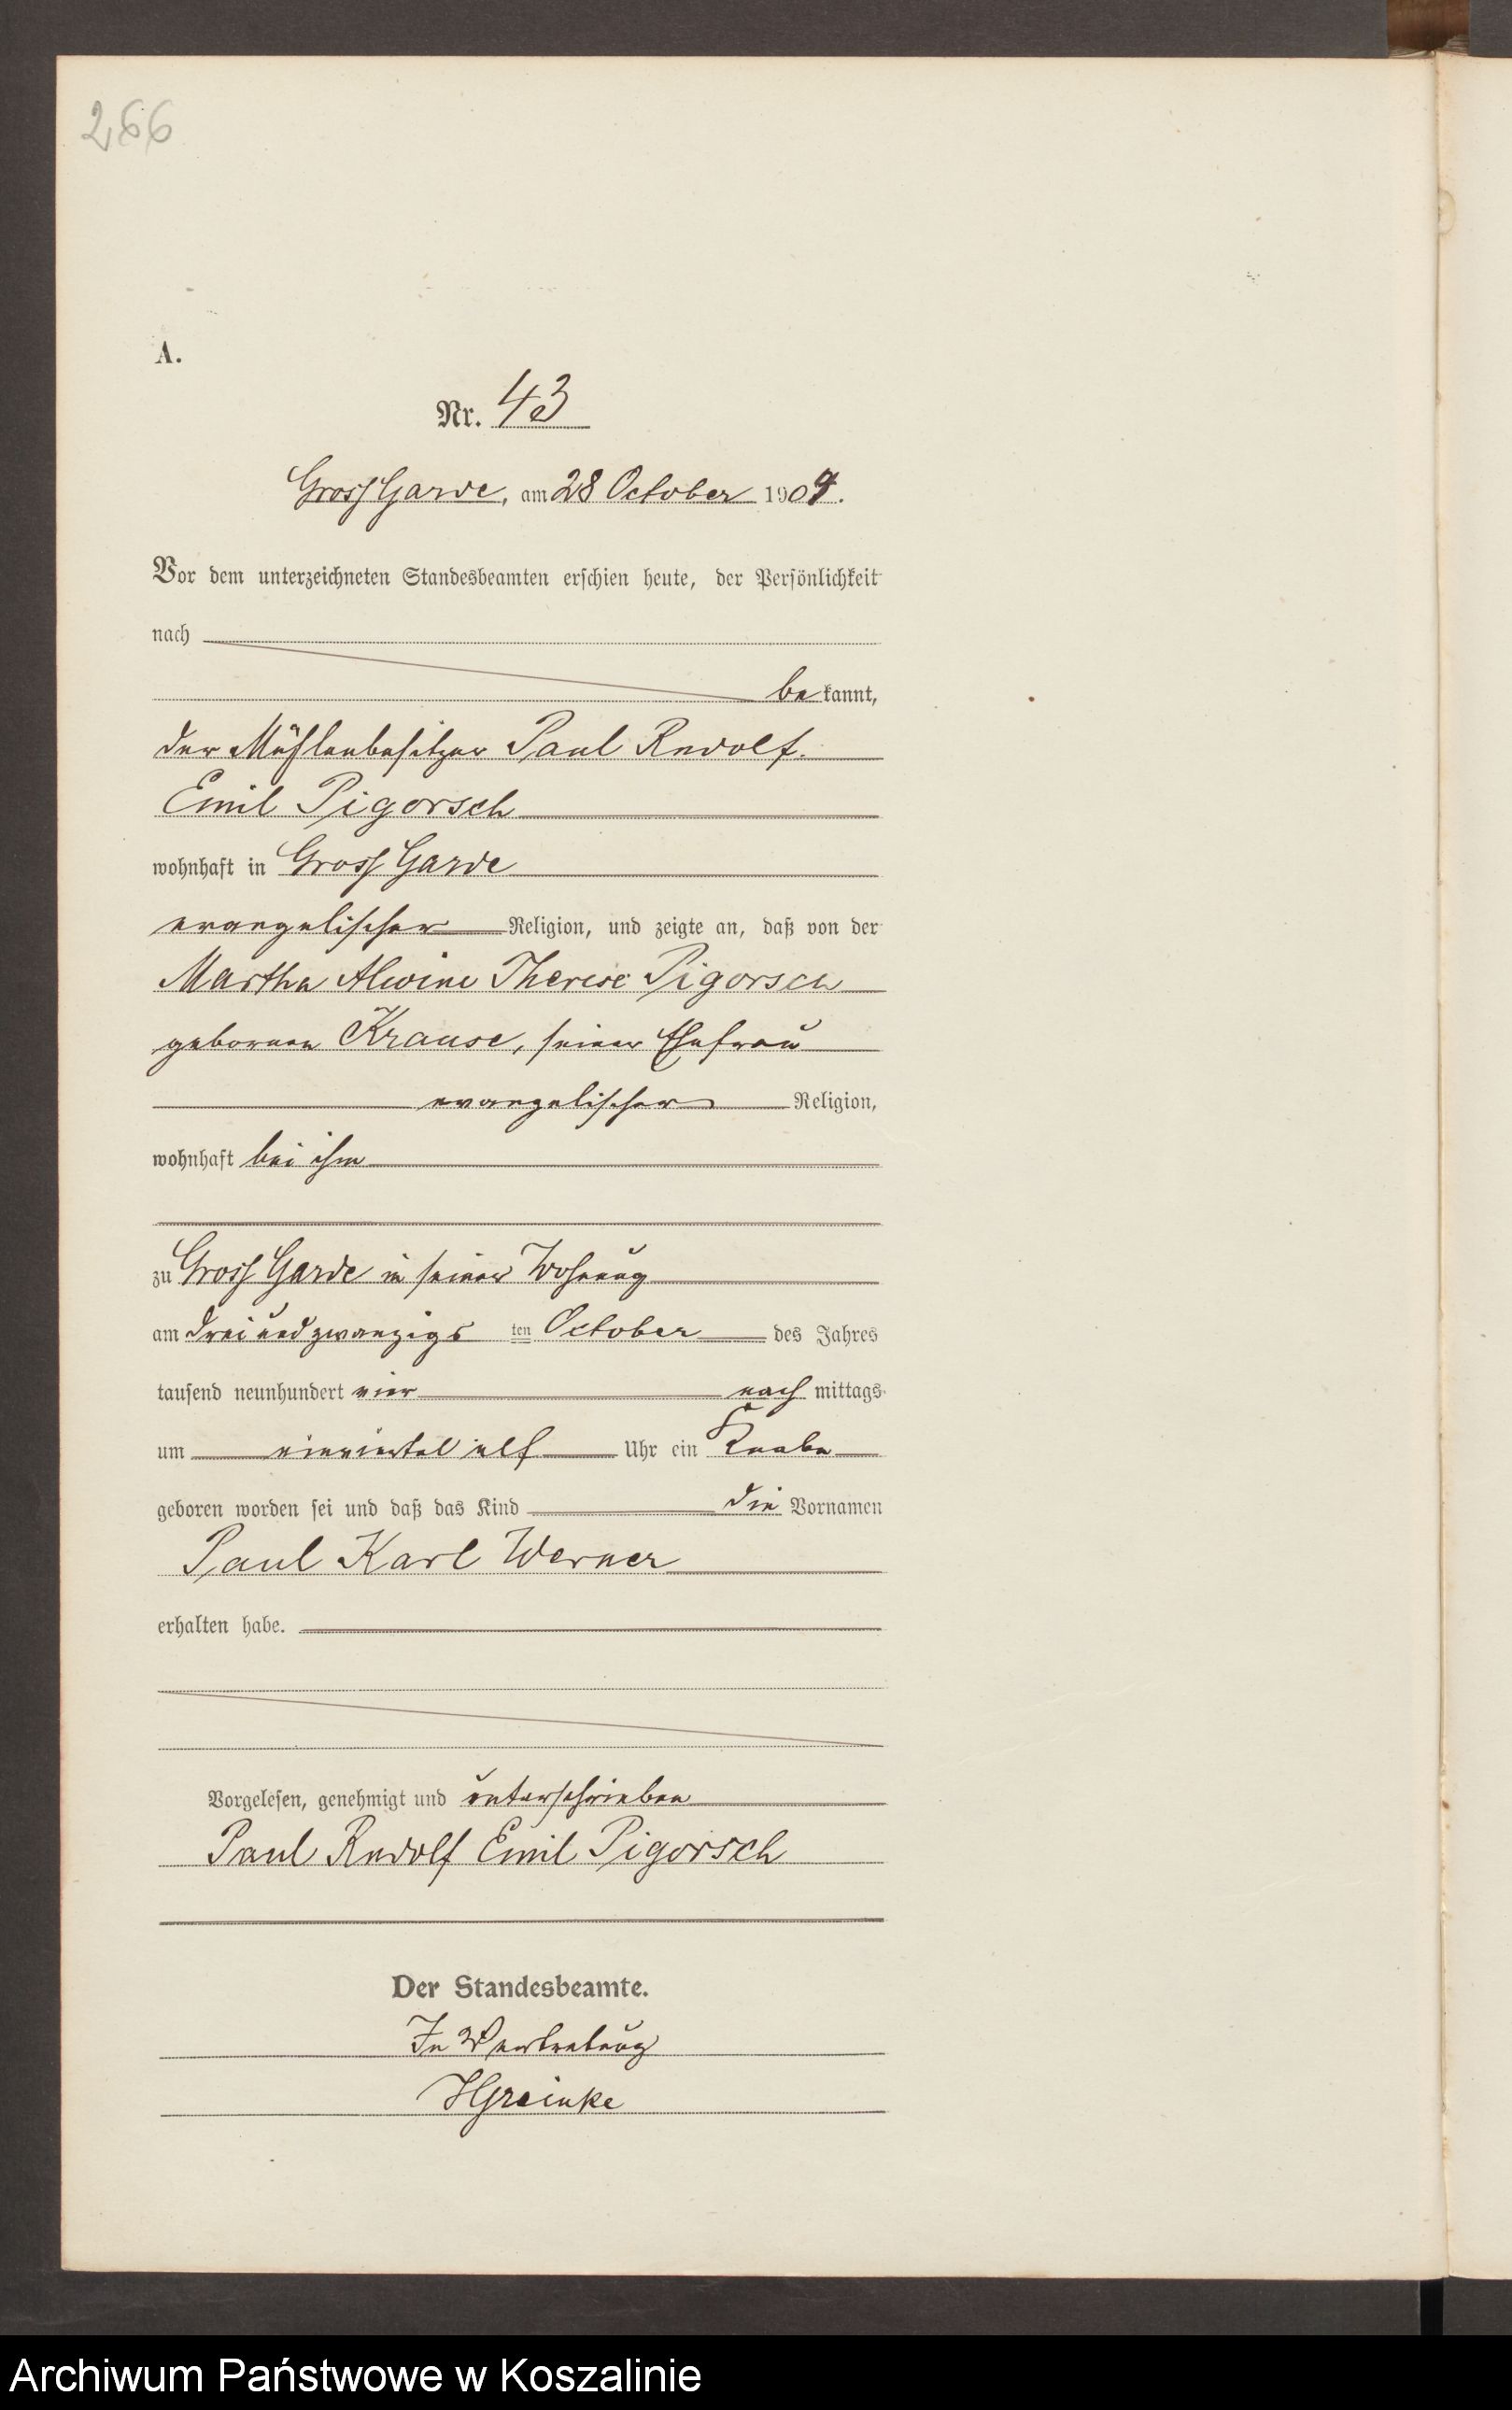 266
A.
Nr. 43
Gross Garde, am 28 October 1904.
Vor dem unterzeichneten Standesbeamten erschien heute, der Persönlichkeit
nach
bekannt,
der Mühlenbesitzer Paul Rudolf
Emil Pigorsch
wohnhaft in Gross Garde
evangelischer Religion, und zeigte an, daß von der
Martha Alwine Therese Pigorsch
geborenen Krause, seiner Ehefrau
evangelischer Religion,
wohnhaft bei ihm
zu Gross Garde in seiner Wohnung
am dreiundzwanzigsten October des Jahres
tausend neunhundert vier nachmittags
um einviertel elf Uhr ein Knabe
geboren worden sei und daß das Kind die Vornamen
Paul Karl Werner
erhalten habe.
Vorgelesen, genehmigt und unterschrieben
Paul Rudolf Emil Pigorsch
Der Standesbeamte.
In Vertretung
HGreinke
Archiwum Państwowe w Koszalinie